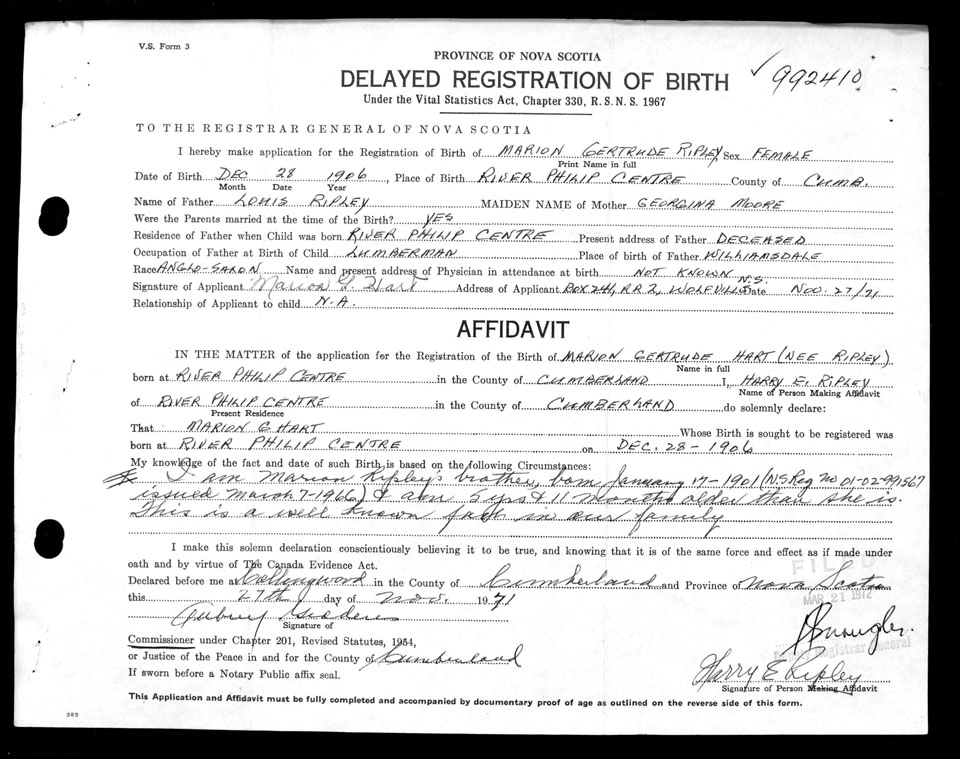 V.S. Form 3
PROVINCE OF NOVA SCOTIA
DELAYED REGISTRATION OF BIRTH
✓992410
Under the Vital Statistics Act, Chapter 330, R.S.N.S. 1967
TO THE REGISTRAR GENERAL OF NOVA SCOTIA
I hereby make application for the Registration of Birth of MARION GERTRUDE RIPLEY Sex FEMALE
Print Name in full
Date of Birth DEC 28 1906, Place of Birth RIVER PHILIP CENTRE County of CUMB.
Month Date Year
Name of Father LOUIS RIPLEY MAIDEN NAME of Mother GEORGINA MOORE
Were the Parents married at the time of the Birth? YES
Residence of Father when Child was born RIVER PHILIP CENTRE Present address of Father DECEASED
Occupation of Father at Birth of Child LUMBERMAN Place of birth of Father WILLIAMSDALE
Race ANGLO-SAXON Name and present address of Physician in attendance at birth NOT KNOWN
Signature of Applicant Marion G. Hart Address of Applicant BOX 241, RR2, WOLFVILLE N.S. Date NOV. 27/71
Relationship of Applicant to child N.A.
AFFIDAVIT
IN THE MATTER of the application for the Registration of the Birth of MARION GERTRUDE HART (NEE RIPLEY).
Name in full
born at RIVER PHILIP CENTRE in the County of CUMBERLAND I, HARRY E. RIPLEY
Name of Person Making Affidavit
of RIVER PHILIP CENTRE in the County of CUMBERLAND do solemnly declare:
Present Residence
That MARION G HART Whose Birth is sought to be registered was
born at RIVER PHILIP CENTRE on DEC. 28-1906
My knowledge of the fact and date of such Birth is based on the following Circumstances:
I am Marion Ripley's brother, born January 17-1901 (N.S. Reg no 01-02-991567
issued March 7-1966) I am 5 yrs & 11 months older than she is.
This is a well known fact in our family
I make this solemn declaration conscientiously believing it to be true, and knowing that it is of the same force and effect as if made under
oath and by virtue of The Canada Evidence Act.
Declared before me at Collingwood in the County of Cumberland and Province of Nova Scotia
FILED
this 27th day of Nov. 1971
MAR 21 1972
Aubrey
Signature of
Commissioner under Chapter 201, Revised Statutes, 1954,
Registrar General
or Justice of the Peace in and for the County of Cumberland
Harry E Ripley
If sworn before a Notary Public affix seal.
Signature of Person Making Affidavit
This Application and Affidavit must be fully completed and accompanied by documentary proof of age as outlined on the reverse side of this form.
385